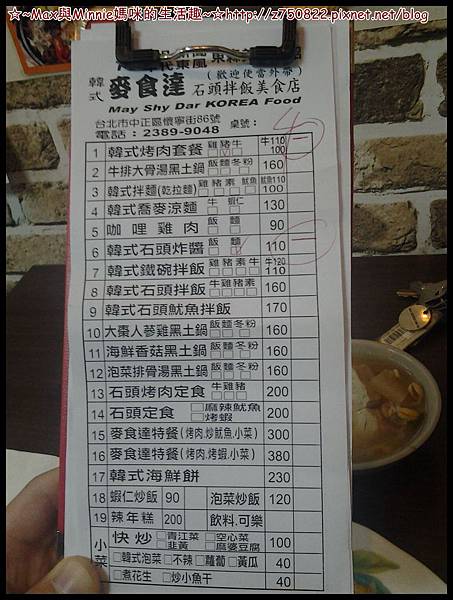 ☆~Max與Minnie媽咪的生活趣~☆http://z750822.pixnet.net/blog
(歡迎便當外帶)
韓式 麥食達 石頭拌飯美食店
May Shy Dar KOREA Food
台北市中正區懷寧街86號 桌號:
電話:2389-9048
1 韓式烤肉套餐 雞豬牛 牛110 100
2 牛排大骨湯黑土鍋 飯麵冬粉 160
3 韓式拌麵(乾拉麵) 雞豬素 魷魚 魷魚110 100
4 韓式蕎麥涼麵 牛 蝦仁 130
5 咖哩雞肉 飯 麵 90
6 韓式石頭炸醬 飯 麵 110
7 韓式鐵碗拌飯 雞豬素牛 牛120 110
8 韓式石頭拌飯 牛雞豬素 160
9 韓式石頭魷魚拌飯 170
10 大棗人蔘雞黑土鍋 飯麵冬粉 160
11 海鮮香菇黑土鍋 飯麵冬粉 160
12 泡菜排骨湯黑土鍋 飯麵冬粉 160
13 石頭烤肉定食 牛雞豬 200
14 石頭定食 □麻辣魷魚 □烤蝦 200
15 麥食達特餐(烤肉.炒魷魚.小菜) 300
16 麥食達特餐(烤肉.烤蝦.小菜) 380
17 韓式海鮮餅 230
18 蝦仁炒飯 90 泡菜炒飯 120
19 辣年糕 200 飲料.可樂
小菜 快炒 □青江菜 □空心菜 □韭黃 □麻婆豆腐 100
□韓式泡菜 □不辣 □蘿蔔 □黃瓜 40
□煮花生 □炒小魚干 40